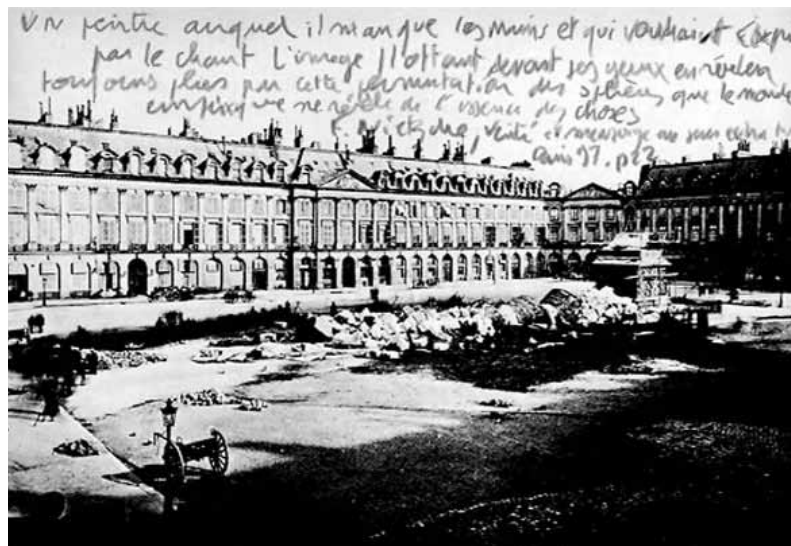 Un peintre auquel il manque les mains et qui voudrait expri
par le chant l'image flottant devant ses yeux en révélera
toujours plus par cette permutation des sphères que le monde
empirique ne révèle de l'essence des choses
F. Nietzsche, Vérité et mensonge au sens extra m
Paris 97. p